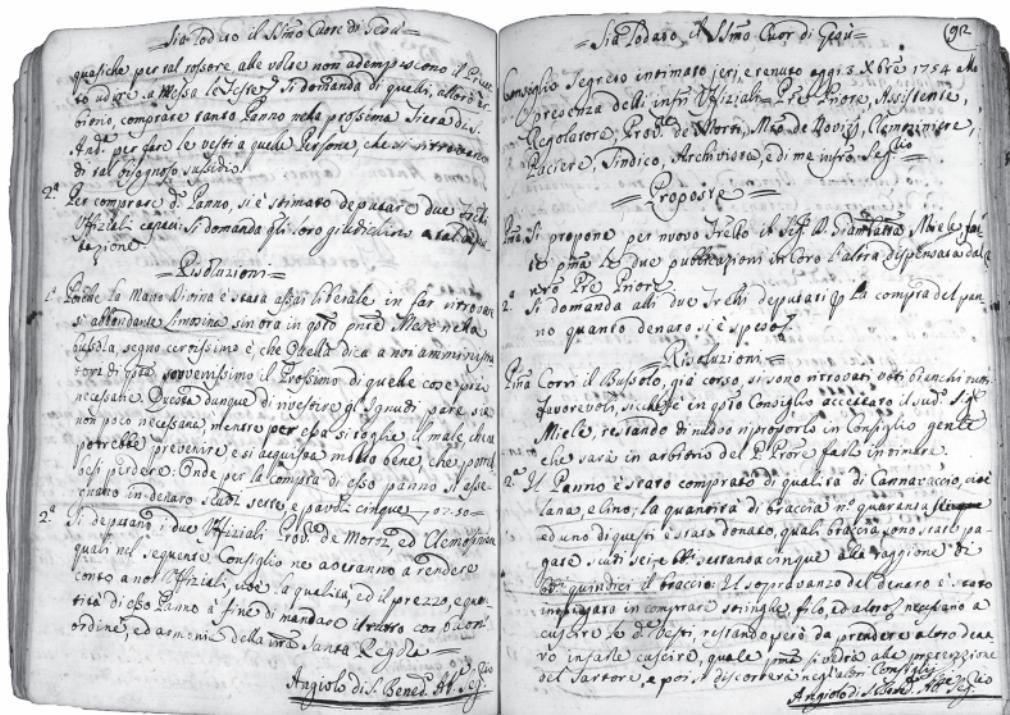 Sia Lodato il SSmo Cuore di Gesù
quasiche per tal rossore alle volte non adempiscono il
to udire a Messa le Feste. Si domanda di quelli, allor
biono, comprare tanto Panno nella prossima Fiera di S.
And.a per fare le vesti a quelle Persone, che si ritrovano
di tal bisognoso sussidio.
2.a Per comprare d.o Panno, si è stimato deputare due Frelli
Uffiziali capaci. Si domanda gli loro giudichino a tal depu-
tazione.
= Risoluzioni =
1.a Perchè la Mano Divina è stata assai liberale in far ritrovare
sì abbondante limosina sin ora in qsto pnte Mese nella
bussola, segno certissimo è, che Quella dica a noi amminist
tori di qsta sovvenissimo il Prossimo di quelle cose più
necessarie. Questa dunque di rivestire gl'Ignudi pare sia
non poco necessaria, mentre per essa si toglie il male, che
potrebbe prevenire e si acquista molto bene, che potreb
besi perdere: Onde per la compra di esso panno si asse-
gnano in denaro scudi sette, e pavoli cinque 07.50=
2.a Si deputano i due Uffiziali Prov.e de Morti, ed Elemosiniere
quali nel sequente Consiglio ne averanno a rendere
conto a noi Uffiziali, cioè la qualità, ed il prezzo, e quan-
tità di esso Panno à fine di mandare il tutto con buon
ordine, ed armonia della nra Santa Regola
Angiolo di S. Bened. Ab. Seg.rio
Sia Lodato il SSmo Cuor di Gesù
92
Consiglio Segreto intimato jeri, e tenuto oggi 3 Xbre 1754 alla
presenza delli infri Uffiziali Pre Priore, Assistente,
Regolatore, Prov.e de Morti, Mro de Novizj, Elemosiniere,
Paciere, Sindico, Archivista, e di me infro Seg.rio
= Proposte =
Pma Si propone per nuovo Frello il Sig.r D. Giambatta Miele fat
te pma le due pubblicazioni in Coro l'altra dispensata dal
nro Pre Priore.
2.a Si domanda alli due Frelli deputati p la compra del pan
no quanto denaro si è speso.
= Risoluzioni =
Pma Corri il Bussolo, già corso, si sono ritrovati voti bianchi tutti
favorevoli, sicchè è in qsto Consiglio accettato il sud.o Sig.r
Miele, restando di nuovo riproporlo in Consiglio gente
che sarà in arbitrio del P. Prore farlo intimare.
2.a Il Panno è stato comprato di qualità di Cannavaccio, cioè
lana, e lino; la quantità di braccia n.o quaranta
ed uno di questi è stato donato, quali braccia sono state pa-
gate scuti sei e bb. settanta cinque alla raggione di
bb. quindici il braccio. Il sopravanzo del denaro è stato
impiegato in comprare stringhe, filo, ed altro necessario a
cuscire le d.e Vesti, restando però da prendere altro dena
ro in farle cuscire, quale pma si vedrà alla pretenzione
del Sartore, e poi si discorrerà negl'altri Consiglj
Angiolo di S. Bened. Ab. Seg.rio